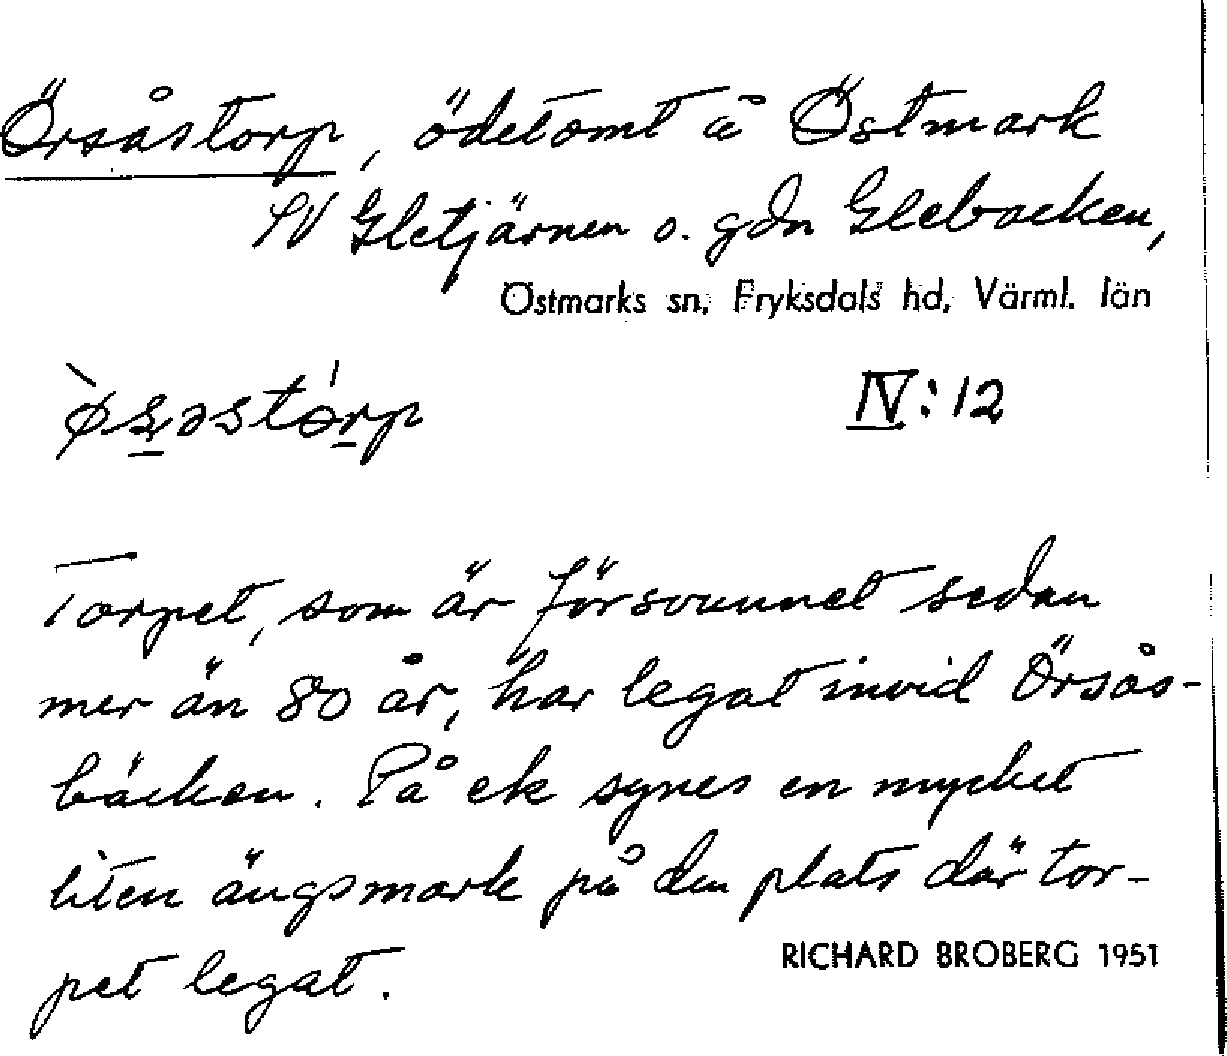 Örsåstorp, ödetomt å Östmark
SV Gletjärnen o. gdn Glebacken,
Östmarks sn, Fryksdals hd, Värml. län
IV:12
Torpet, som är försvunnet sedan
mer än 80 år, har legat invid Örsås-
bäcken. På ek synes en mycket
liten ängsmark på den plats där tor-
pet legat.
RICHARD BROBERG 1951